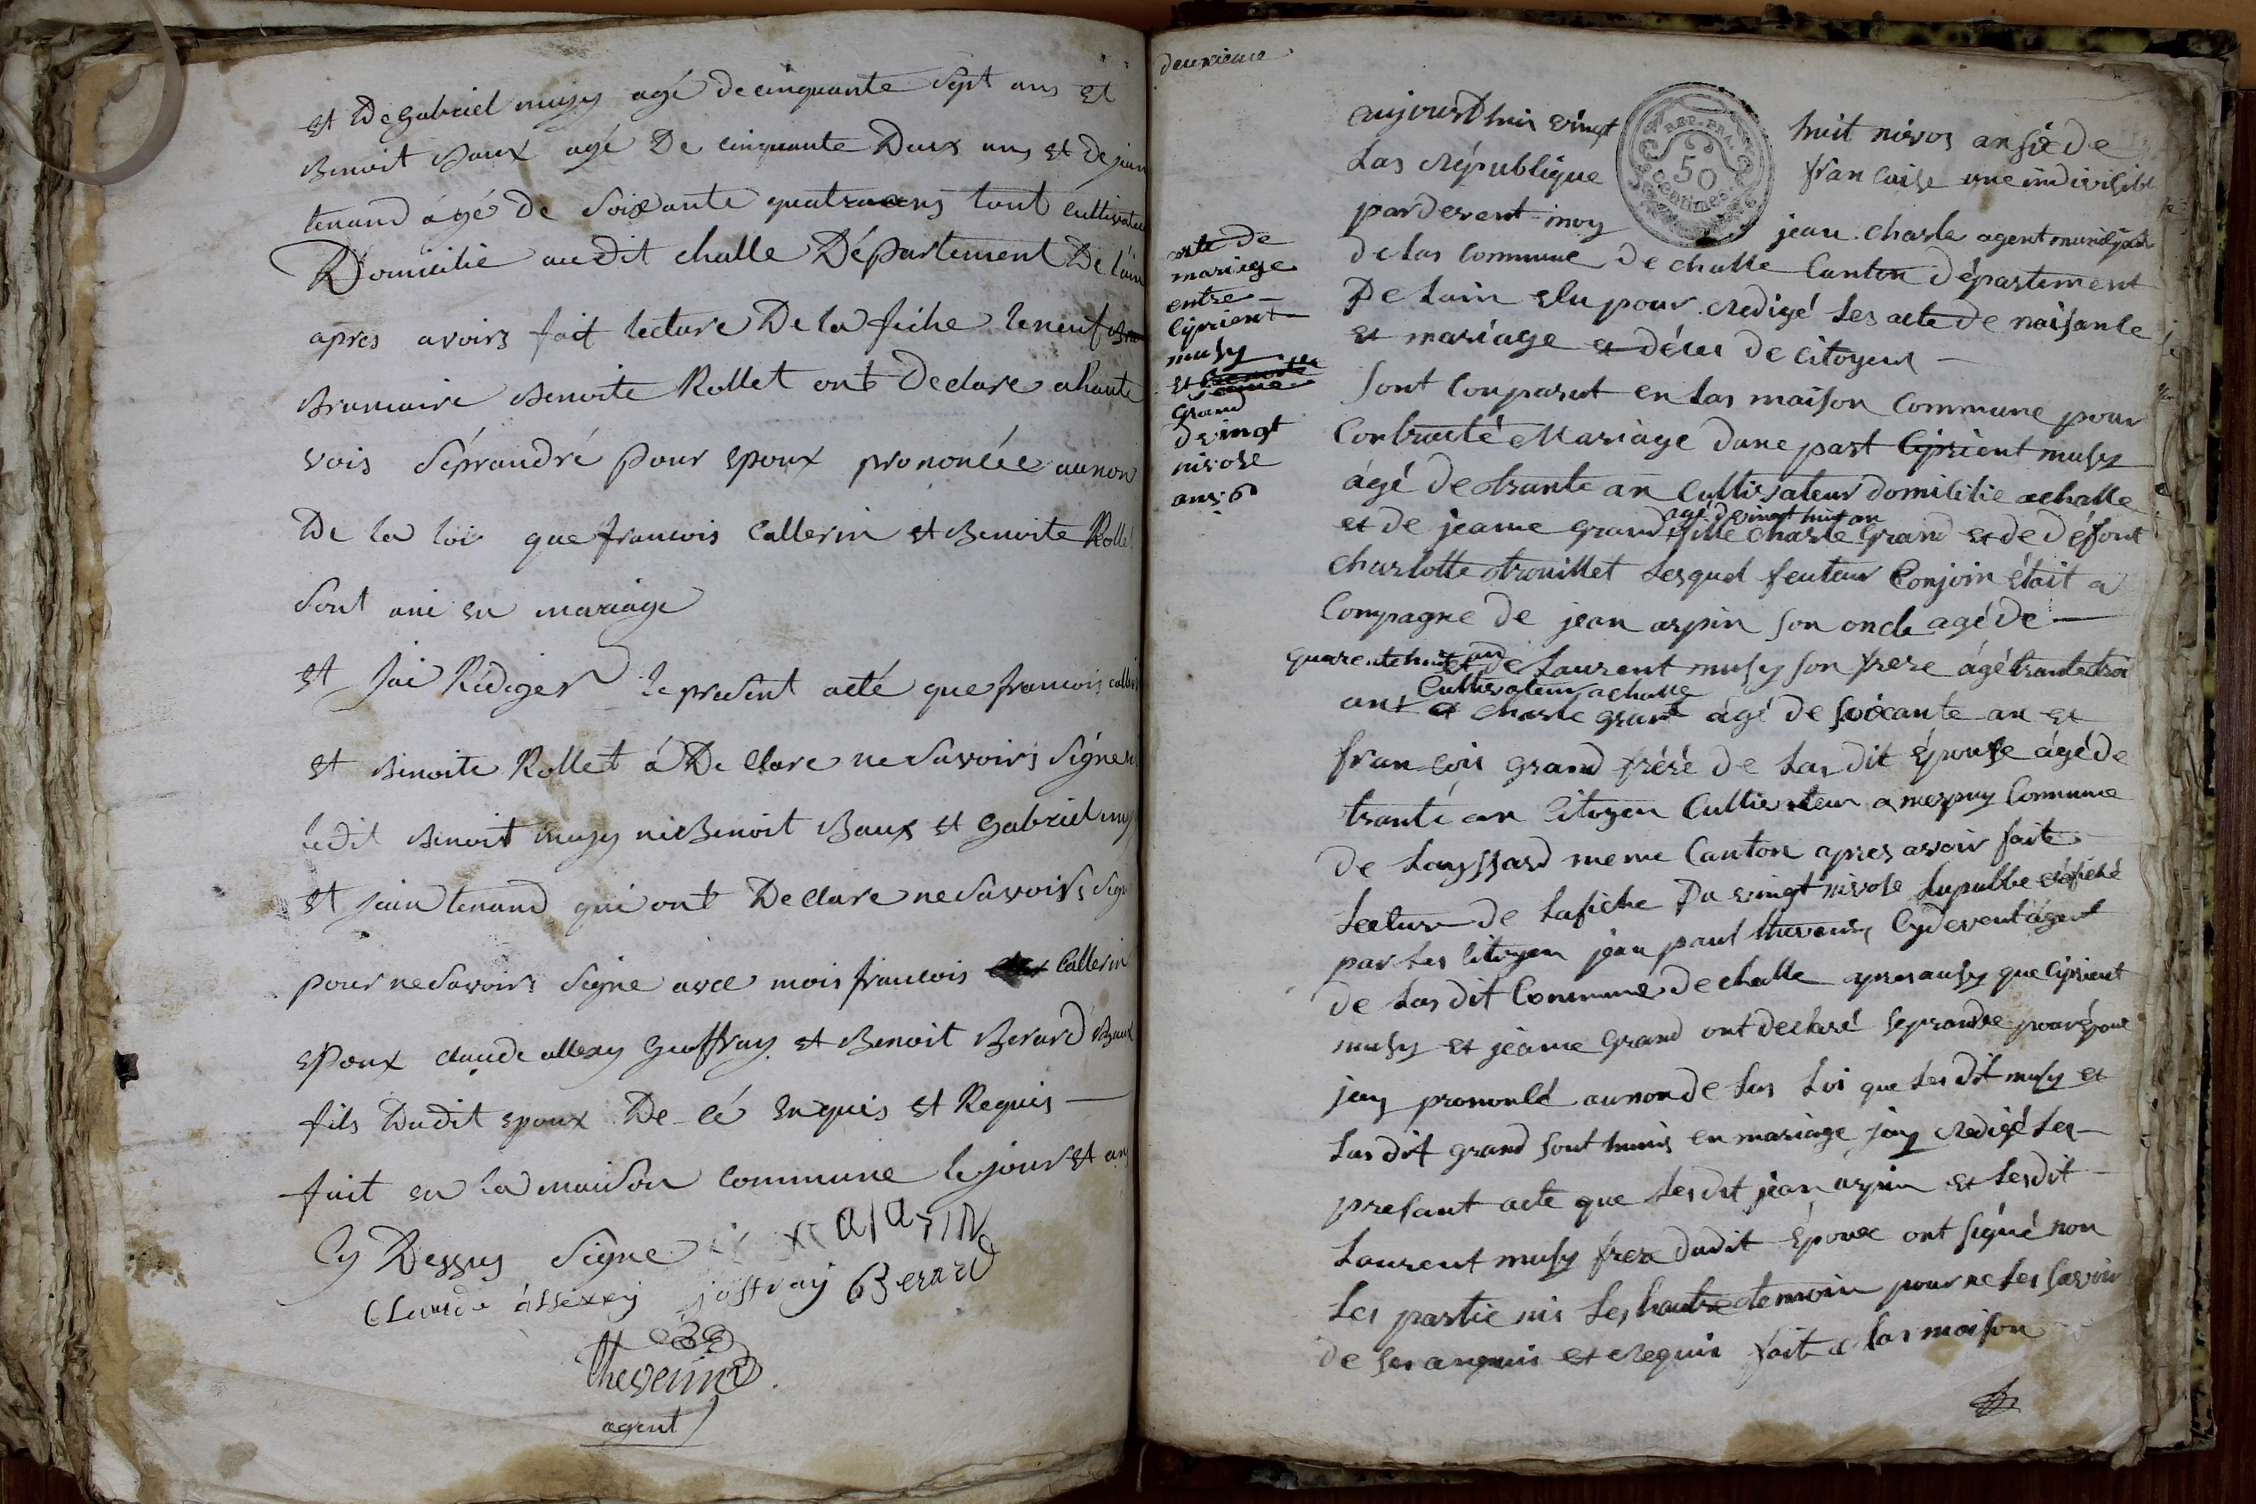 et De gabriel musy agé de cinquante Sept ans et
Benoit Baux agé De cinquante Deux ans et de jain
tenand ágé de Soixante quatra ans tout cultivateu
Domicilié audit challe Département De l'ain
apres avoirs fait lecture De la fiche le neuf
Brumaire Benoite Rollet ont Declare a haute
vois Séprandré pour epoux prononcée au non
De la loi que francois Callerin et Benoite Rollet
Sont uni en mariage
et Jai Rédiger le present acté que francois calleri
et Benoite Rollet á De Clare ne Savoirs Signer
ledit Benoit musy ni Benoit Baux et Gabriel mu
et jain tenand qui ont De Clare ne Savoirs Sign
pour ne Savoirs Signe avec mois francois Callerin
epoux claude allexy geoffray et Benoit Berard Baux
fils Dudit epoux De cé enquis et Requis
fait en la maison commune le jour et an
Cy Dessus Signe
Claude allexey joffray B erard
thevenin
agent
deuxieme
aujourdhuit vingt huit nivos an six de
Las République francaise une indivisible
par devent moy jean charle agent municipal
de las Commune de challe Canton département
De Lain elu pour Redigé Les acte de naisance
et mariage et déces de citoyens
Sont Comparut en las maison Commune pour
Contracté Mariage dune part Ciprient musy
ágé de trante an Cultivateur domicilie a challe
agé d vingt huit an
et de jeanne grand fille charle grand et de défont
charlotte trouillet Lesquel feuteur Conjoin était a
Compagne de jean arpin son oncle agé de
quarente huit an et de Laurent musy son frere ágé trante troi
Cultivateur a challe
ans et charle grand ágé de soixante an et
francois grand fréré de Las dit épouse ágé de
tranté an Citoyen Cultivateur a merpuy Commune
de Layssard meme Canton apres avoir faite
Lecture de Lafiche Du vingt nivose Lupublie et afiché
par Les Citoyen jean paul thevenin Cydevent ágent
de Las dit Commune de challe apres ausy que Ciprient
musy et jeanne grand ont declaré se prandre pour époux
jay prononcé au non de Las Loi que Les dit musy et
Las dit grand sont hunis en mariage jay Redigé Les
presant acte que Les dit jean arpin et Lesdit
Laurent musy frere dudit époux ont signé non
Les partie nis Les hautre temoin pour ne Les savoir
de ses anquis et Requis fait a las maison
acte de
mariege
entre
Ciprient
musy
et jeanne
grand
d vingt
nivose
ans 6